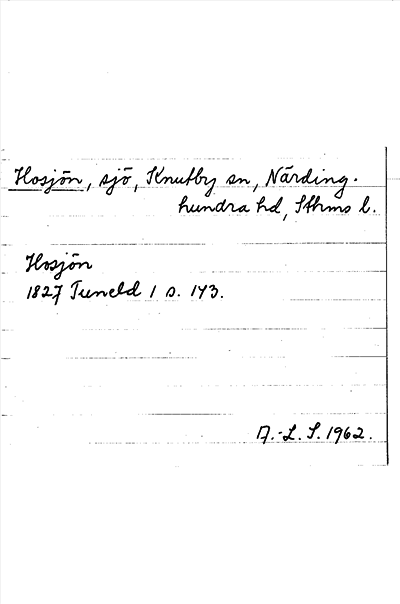 Hosjön, sjö, Knutby sn, Närding-
hundra hd, Sthms l.
Hosjön
1827 Tuneld 1 s. 143.
A.-L. S. 1962.